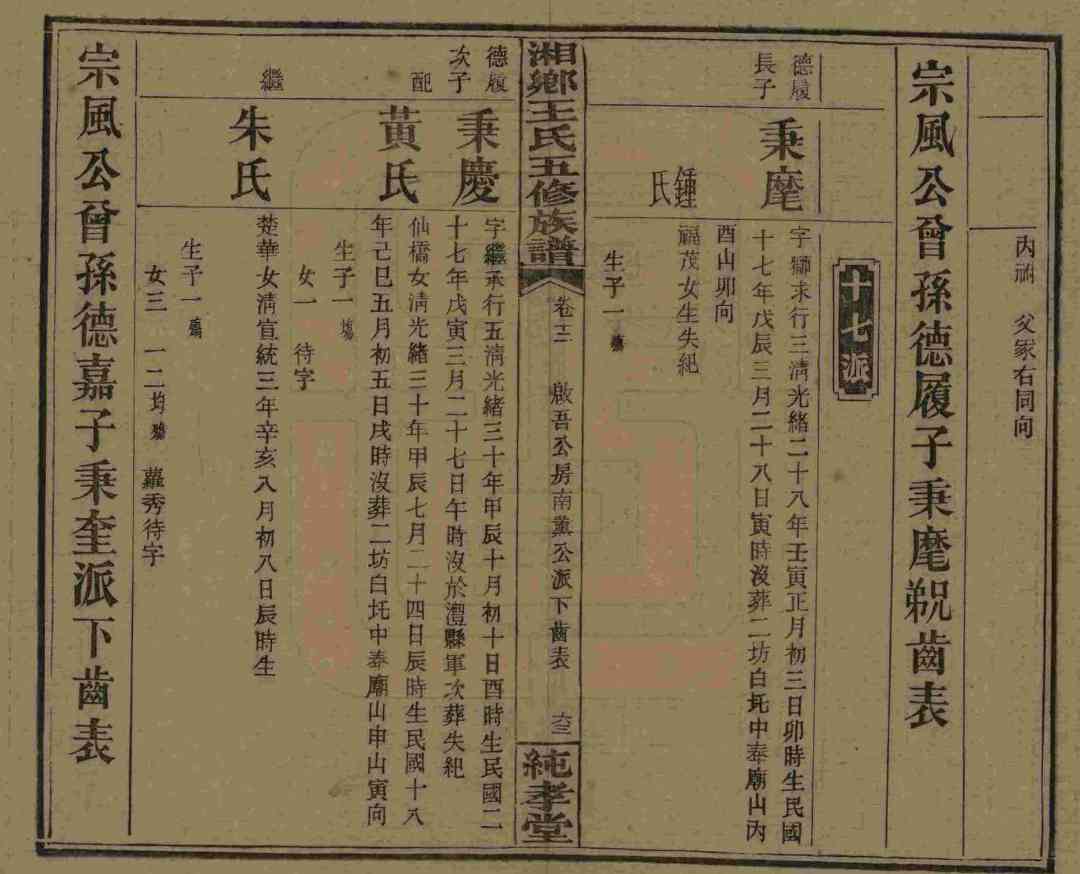 父冢右同向
宗風公曾孫德履子秉麾覣齒表
十七派
德履
長子
秉麾
字師求行三清光緒二十八年壬寅正月初三日卯時生民國
十七年戊辰三月二十八日寅時沒葬二坊白圫中奉廟山內
酉山卯向
鍾氏
福茂女生失紀
生子一
湘鄉王氏五修族譜
卷十三
啟吾公房南薰公派下齒表
六三
純孝堂
德履
次子
秉慶
字繼承行五清光緒三十年甲辰十月初十日酉時生民國二
十七年戊寅三月二十七日午時沒於澧縣軍次葬失紀
配
黃氏
仙橋女清光緒三十年甲辰七月二十四日辰時生民國十八
年己巳五月初五日戌時沒葬二坊白圫中奉廟山申山寅向
生子一
女一 待字
繼
朱氏
楚華女清宣統三年辛亥八月初八日辰時生
生子一
女三 一二均殤 蘿秀待字
宗風公曾孫德嘉子秉奎派下齒表